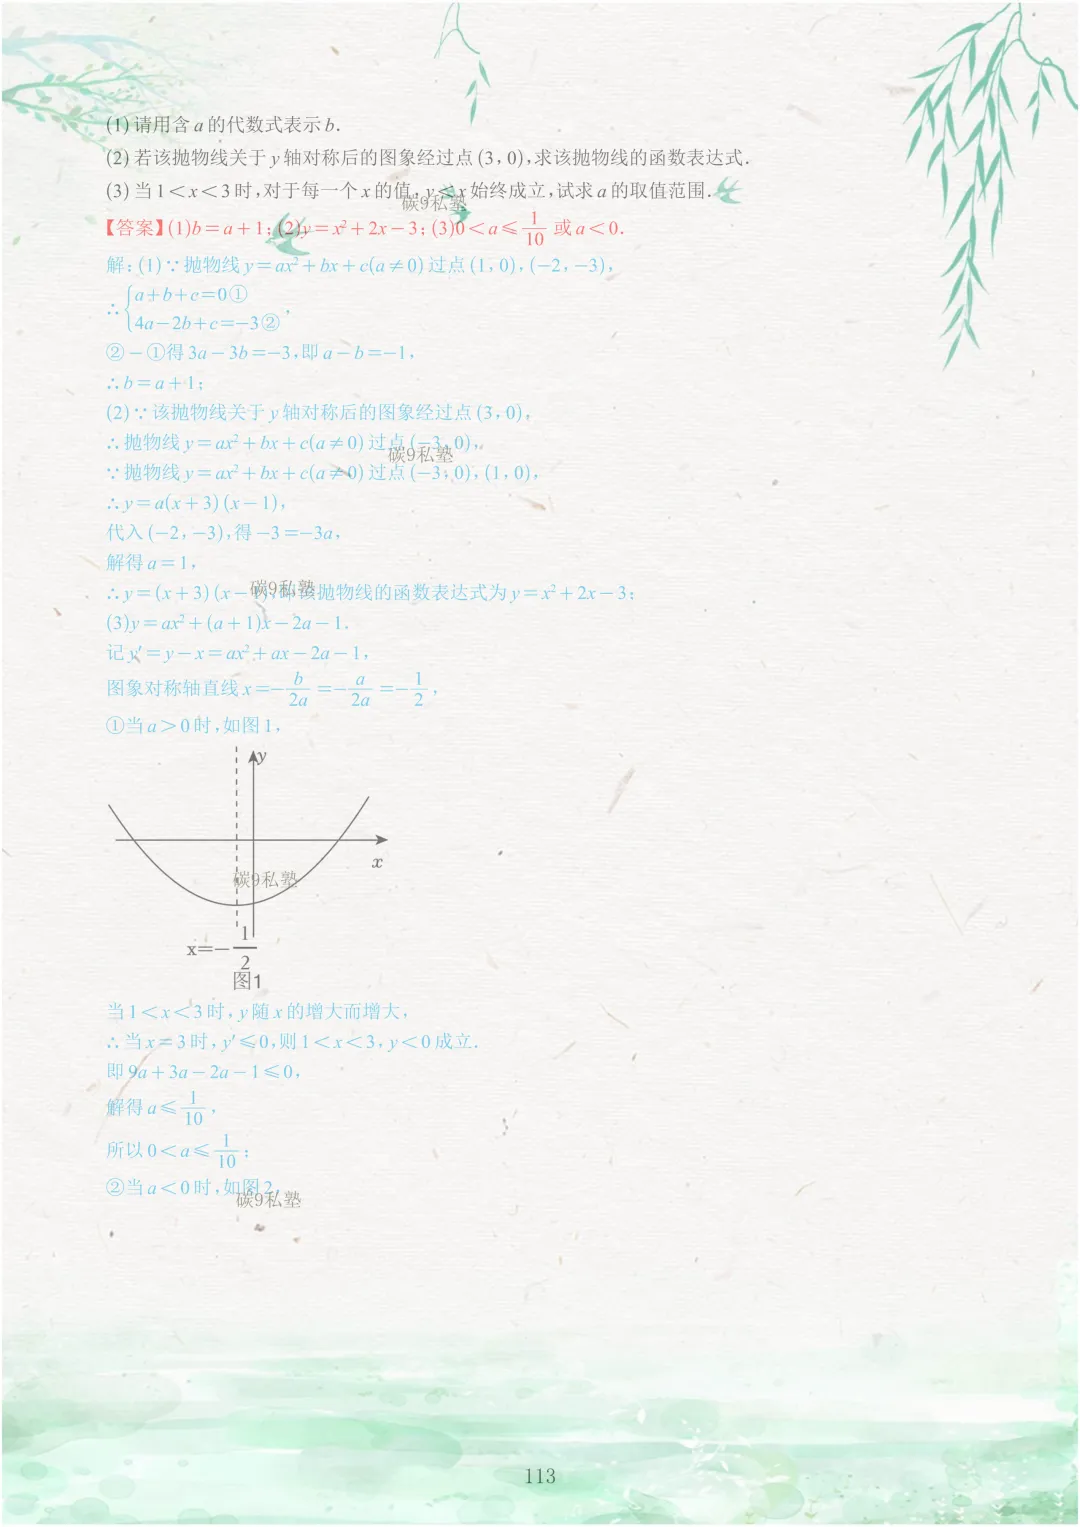 (1) 请用含 a 的代数式表示 b.
(2) 若该抛物线关于 y 轴对称后的图象经过点 (3, 0),求该抛物线的函数表达式.
(3) 当 1 < x < 3 时,对于每一个 x 的值, y ⩽ x 始终成立,试求 a 的取值范围.
碳9私塾
【答案】(1)b = a + 1; (2)y = x² + 2x − 3; (3)0 < a ⩽ 1/10 或 a < 0.
解: (1) ∵ 抛物线 y = ax² + bx + c(a ≠ 0) 过点 (1, 0), (−2, −3),
∴ {a + b + c = 0①
4a − 2b + c = −3② ,
② − ①得 3a − 3b = −3,即 a − b = −1,
∴ b = a + 1;
(2) ∵ 该抛物线关于 y 轴对称后的图象经过点 (3, 0),
∴ 抛物线 y = ax² + bx + c(a ≠ 0) 过点 (−3, 0),
碳9私塾
∵ 抛物线 y = ax² + bx + c(a ≠ 0) 过点 (−3, 0), (1, 0),
∴ y = a(x + 3) (x − 1),
代入 (−2, −3),得 −3 = −3a,
解得 a = 1,
∴ y = (x + 3) (x − 1),即该抛物线的函数表达式为 y = x² + 2x − 3;
碳9私塾
(3)y = ax² + (a + 1)x − 2a − 1.
记 y′ = y − x = ax² + ax − 2a − 1,
图象对称轴直线 x = − b/2a = − a/2a = − 1/2 ,
①当 a > 0 时,如图 1,
y
x
碳9私塾
x=− 1/2
图1
当 1 < x < 3 时, y 随 x 的增大而增大,
∴ 当 x = 3 时, y′ ⩽ 0,则 1 < x < 3, y < 0 成立.
即 9a + 3a − 2a − 1 ⩽ 0,
解得 a ⩽ 1/10 ,
所以 0 < a ⩽ 1/10 ;
②当 a < 0 时,如图 2,
碳9私塾
113